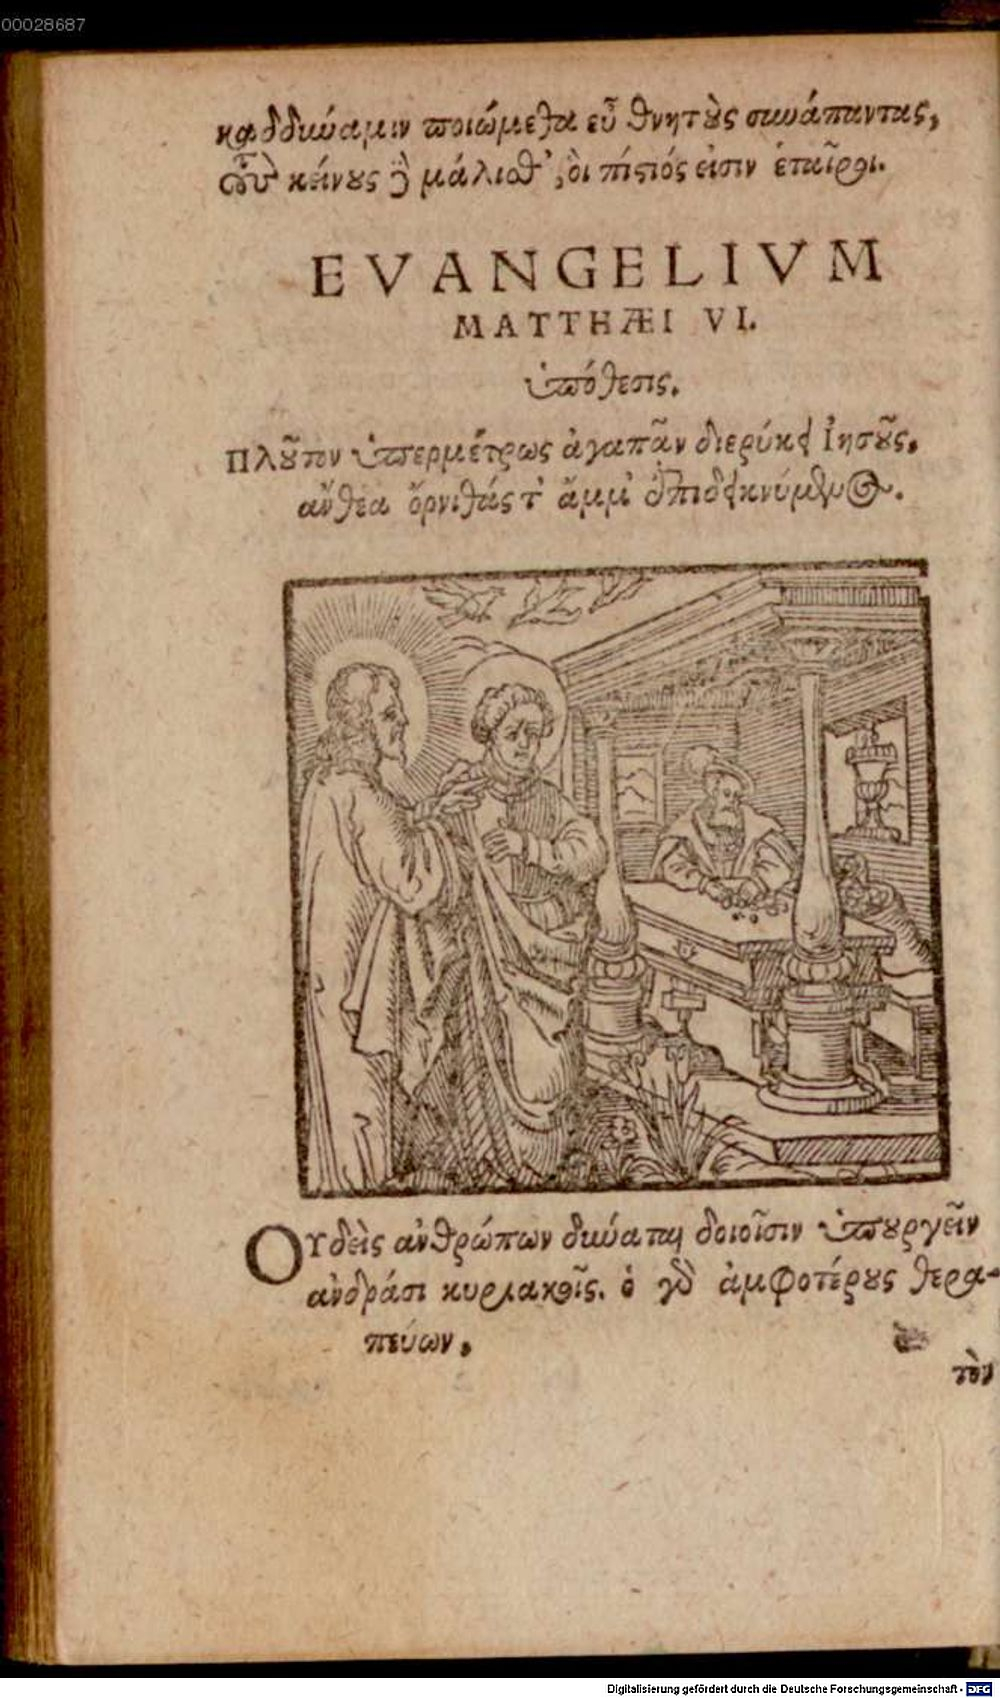 00028687
καδδύναμιν ποιώμεθα εὖ θνητοὺς συνάπαντας,
κείνους δὲ μάλισθ', οἳ πίστιός εἰσιν ἑταῖροι.
EVANGELIVM
MATTHÆI VI.
ὑπόθεσις.
Πλοῦτον ὑπερμέτρως ἀγαπᾶν διερύκει Ἰησοῦς,
ἄνθεα ὄρνιθάς τ' ἄμμ' ἐπιδεικνύμενος.
Οὐδεὶς ἀνθρώπων δύναται δοιοῖσιν ὑπουργεῖν
ἀνδράσι κυριακοῖς. ὁ γὰρ ἀμφοτέρους θερα-
πεύων,
τὸν
Digitalisierung gefördert durch die Deutsche Forschungsgemeinschaft - DFG